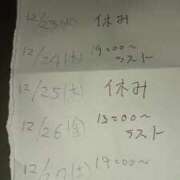 12/23(火) 休み
12/24(水) 19:00〜ラスト
12/25(木) 休み
12/26(金) 18:00〜ラスト
12/27(土) 19:00〜